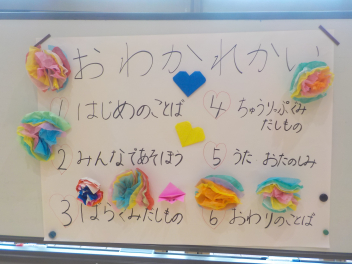 おわかれかい
1 はじめのことば
2 みんなであそぼう
3 ばらぐみだしもの
4 ちゅうりっぷぐみ
だしもの
5 うた おたのしみ
6 おわりのことば